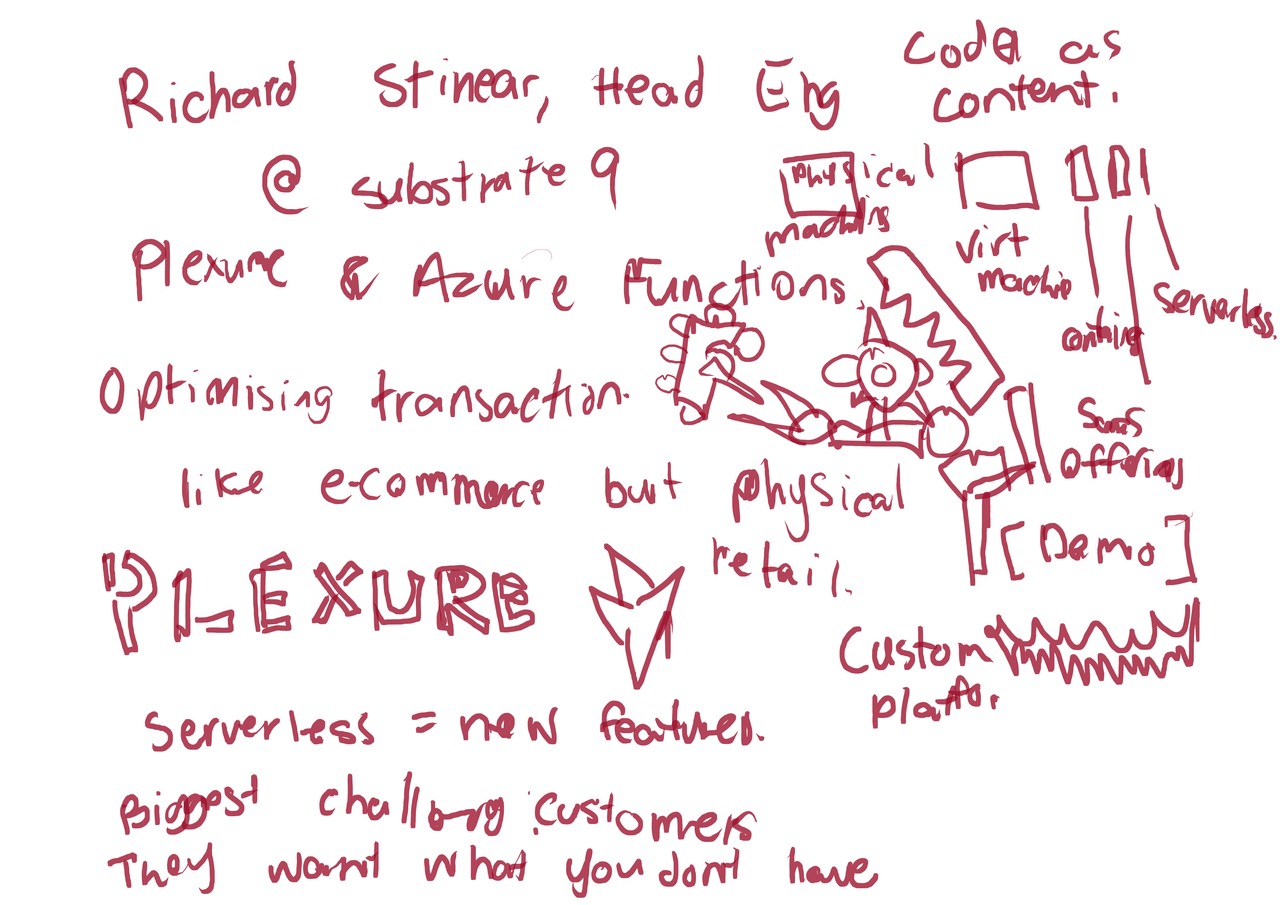 Richard Stinear, Head Eng
@ substrate 9
Plexure & Azure Functions.
Optimising transaction.
like e-commerce but physical
retail.
PLEXURE
Serverless = new features.
Biggest challeng : customers
They want what you dont have
Code as
content.
physical
machins
virt
machin
serverless.
SaaS
offering
[Demo]
Custom
platfo.